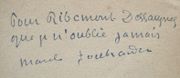 Pour Ribemont Dessaignes
que je n'oublie jamais
marcel jouhandeau